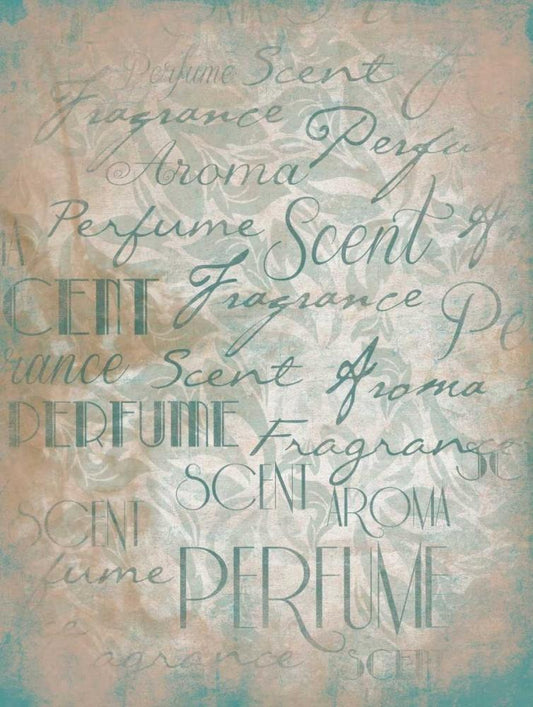 Perfume Scent
Fragrance
Perfu
Aroma
Perfume Scent
A
CENT Fragrance
Pe
rance Scent Aroma
PERFUME Fragranc
SC
SCENT AROMA
SCENT
fume PERFUME
agrance SCENT